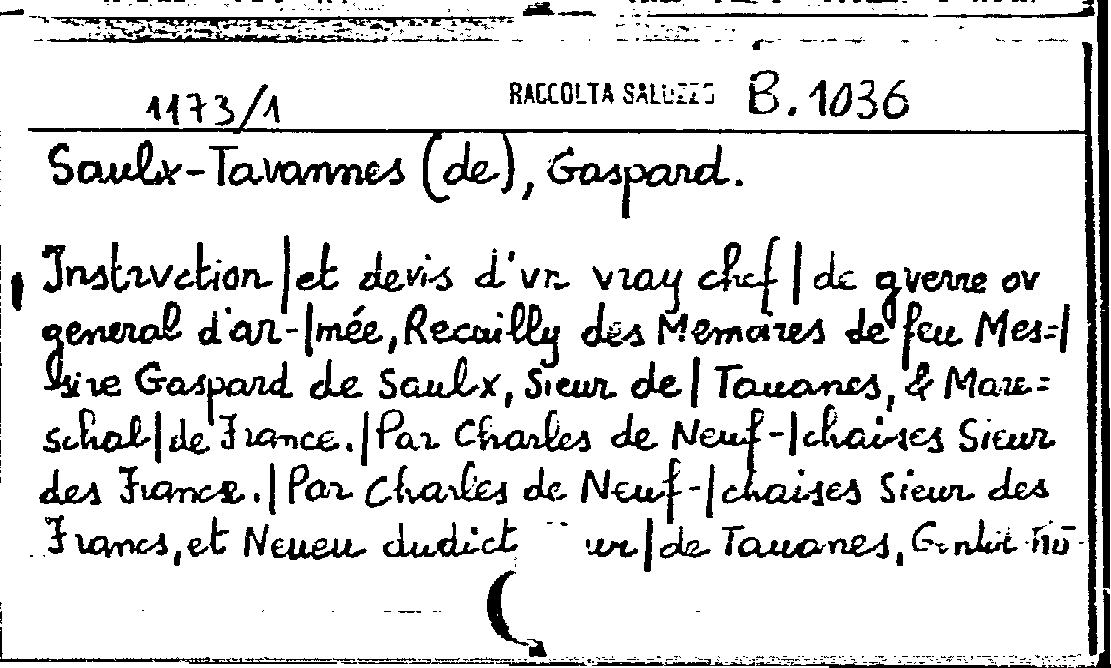 1173/1 RACCOLTA SALUZZO B.1036
Saulx-Tavannes (de), Gaspard.
Instrvction|et devis d'vn vray chef|de gverre ov
general d'ar-|mée, Recuilly des Memoires de feu Mes=|
sire Gaspard de Saulx, Sieur de|Tauanes, & Mare=
schal|de France.|Par Charles de Neuf-|chaises Sieur
des France.|Par Charles de Neuf-|chaises Sieur des
Francs, et Neueu dudict ur|de Tauanes,